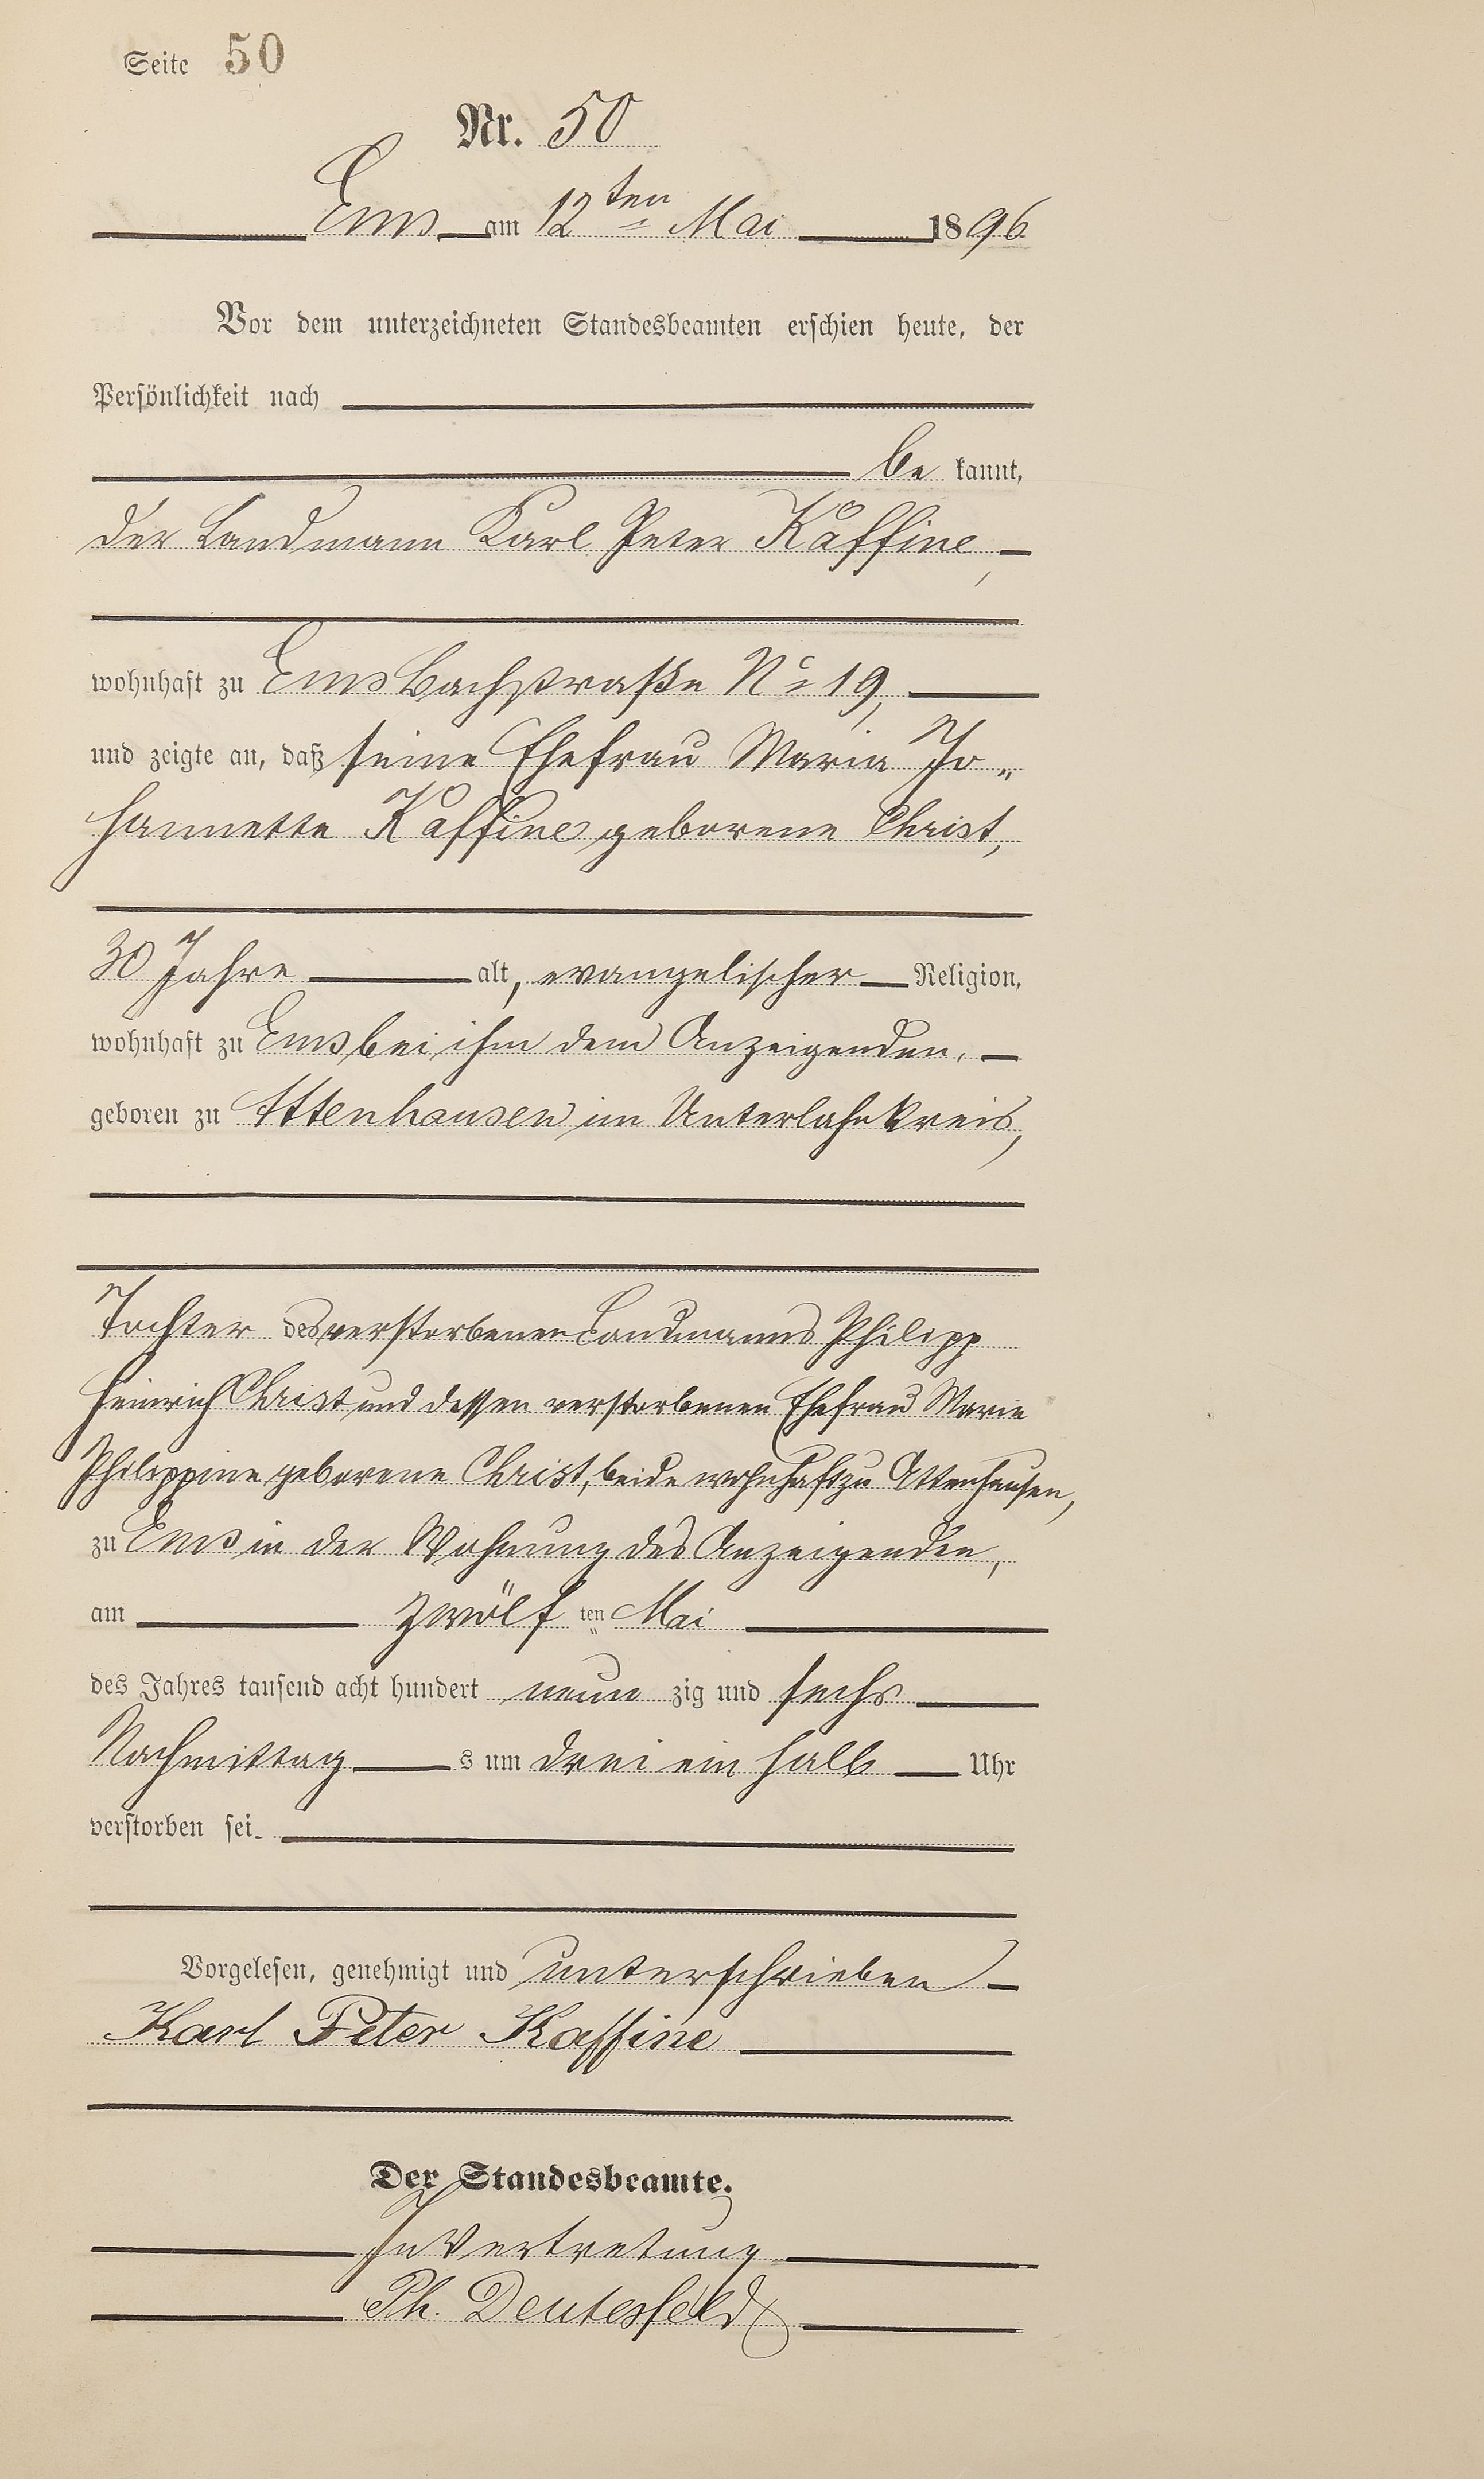 Seite 50
Nr. 50
Ems am 12ten Mai 1896
Vor dem unterzeichneten Standesbeamten erschien heute, der
Persönlichkeit nach
be kannt,
der Landmann Karl Peter Kaffine,
wohnhaft zu Ems Bachstraße No 19,
und zeigte an, daß seine Ehefrau Maria Jo„
hannette Kaffine geborene Christ,
30 Jahre alt, evangelischer Religion,
wohnhaft zu Ems bei ihm dem Anzeigenden,
geboren zu Attenhausen im Unterlahnkreis,
Tochter des verstorbenen Landmanns Philipp
Heinrich Christ und dessen verstorbenen Ehefrau Marie
Philippine geborene Christ, beide wohnhaft zu Attenhausen,
zu Ems in der Wohnung des Anzeigenden,
am zwölf ten Mai
des Jahres tausend acht hundert neun zig und sechs
Nachmittag s um drei ein halb Uhr
verstorben sei.
Vorgelesen, genehmigt und unterschrieben
Karl Peter Kaffine
Der Standesbeamte.
In Vertretung
Ph. Deutesfeld